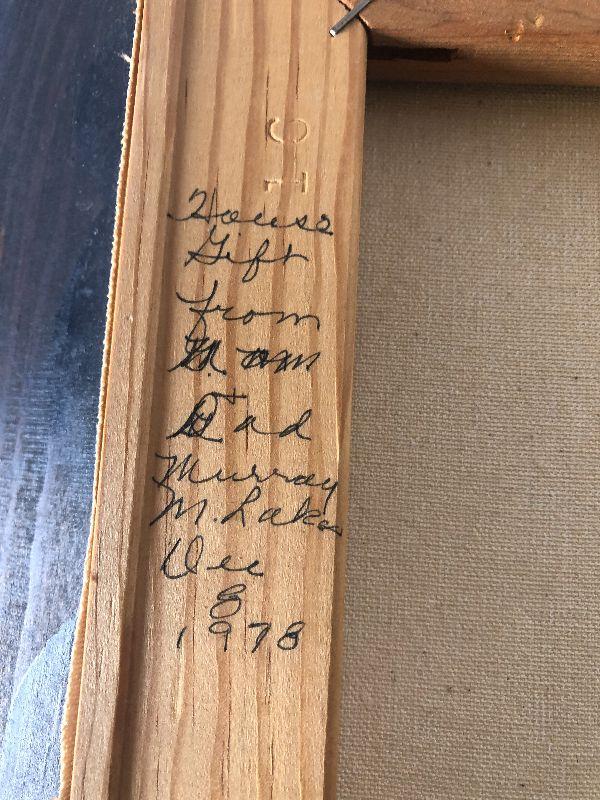 15
House
Gift
from
Mom
+
Dad
Murray
M.
Dec
8
1978